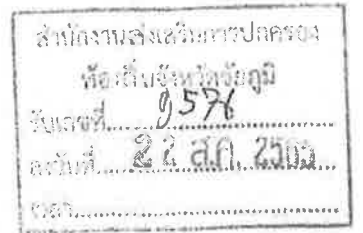 สำนักงานส่งเสริมการปกครอง
ท้องถิ่นจังหวัดชัยภูมิ
รับเลขที่.....9576
ลงวันที่..... 22 ส.ค. 2565
เวลา.....